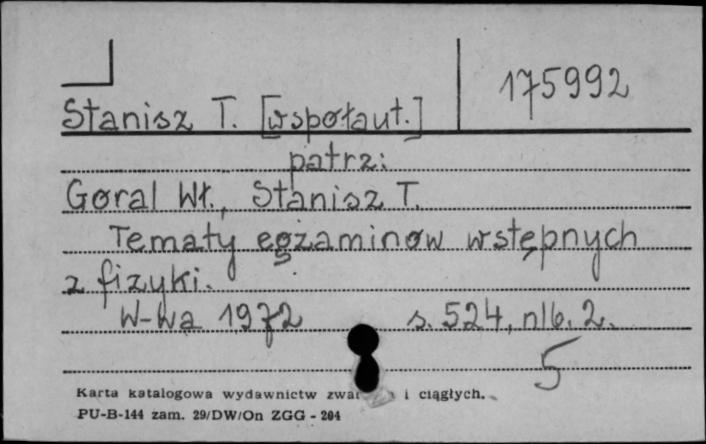 175992
Stanisz T. [współaut.]
patrz:
Goral Wł., Stanisz T.
Tematy egzaminow wstępnych
z fizyki.
W-wa 1972 s. 524, nlb. 2.
5
Karta katalogowa wydawnictw i ciągłych.
PU-B-144 zam. 29/DW/On ZGG - 204